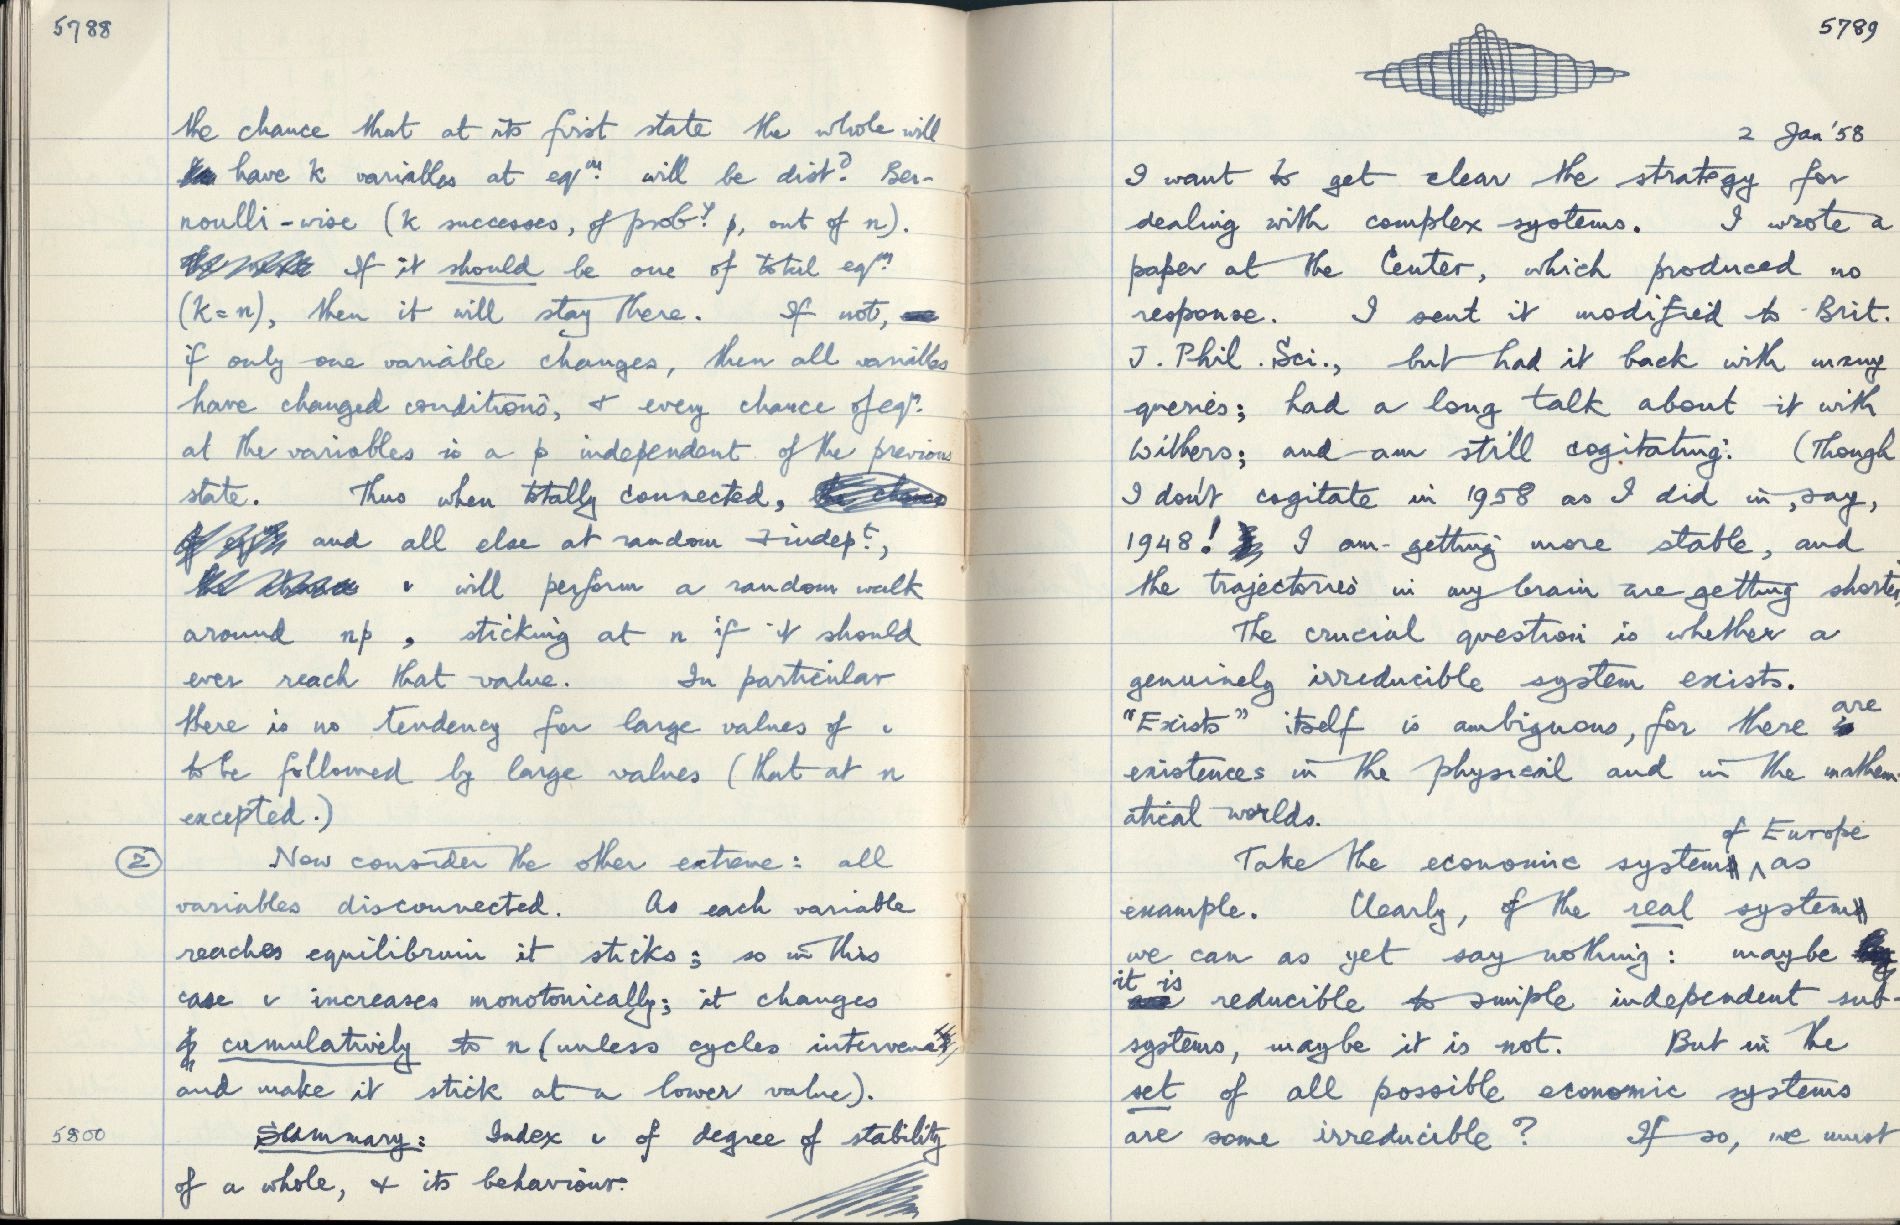 5788
the chance that at its first state the whole will
have k variables at eqm. will be distd. Ber-
noulli-wise (k successes, of proby. p, out of n).
If it should be one of total eqm.
(k=n), then it will stay there. If not,
if only one variable changes, then all variables
have changed conditions, & every chance of eqm.
at the variables is a p independent of the previous
state. Thus when totally connected,
and all else at random & indept.,
ι will perform a random walk
around np, sticking at n if it should
ever reach that value. In particular
there is no tendency for large values of ι
to be followed by large values (that at n
excepted.)
② Now consider the other extreme: all
variables disconnected. As each variable
reaches equilibrium it sticks; so in this
case ι increases monotonically; it changes
cumulatively to n (unless cycles intervene
and make it stick at a lower value).
5800 Summary: Index ι of degree of stability
of a whole, & its behaviour.
5789
2 Jan '58
I want to get clear the strategy for
dealing with complex systems. I wrote a
paper at the Center, which produced no
response. I sent it modified to Brit.
J. Phil. Sci., but had it back with many
queries; had a long talk about it with
Withers; and am still cogitating. (Though
I don't cogitate in 1958 as I did in, say,
1948! I am getting more stable, and
the trajectories in my brain are getting shorter)
The crucial question is whether a
genuinely irreducible system exists.
"Exists" itself is ambiguous, for there are
existences in the physical and in the mathem-
atical worlds.
Take the economic system of Europe as
example. Clearly, of the real system
we can as yet say nothing: maybe
it is reducible to simple independent sub-
systems, maybe it is not. But in the
set of all possible economic systems
are some irreducible? If so, we must